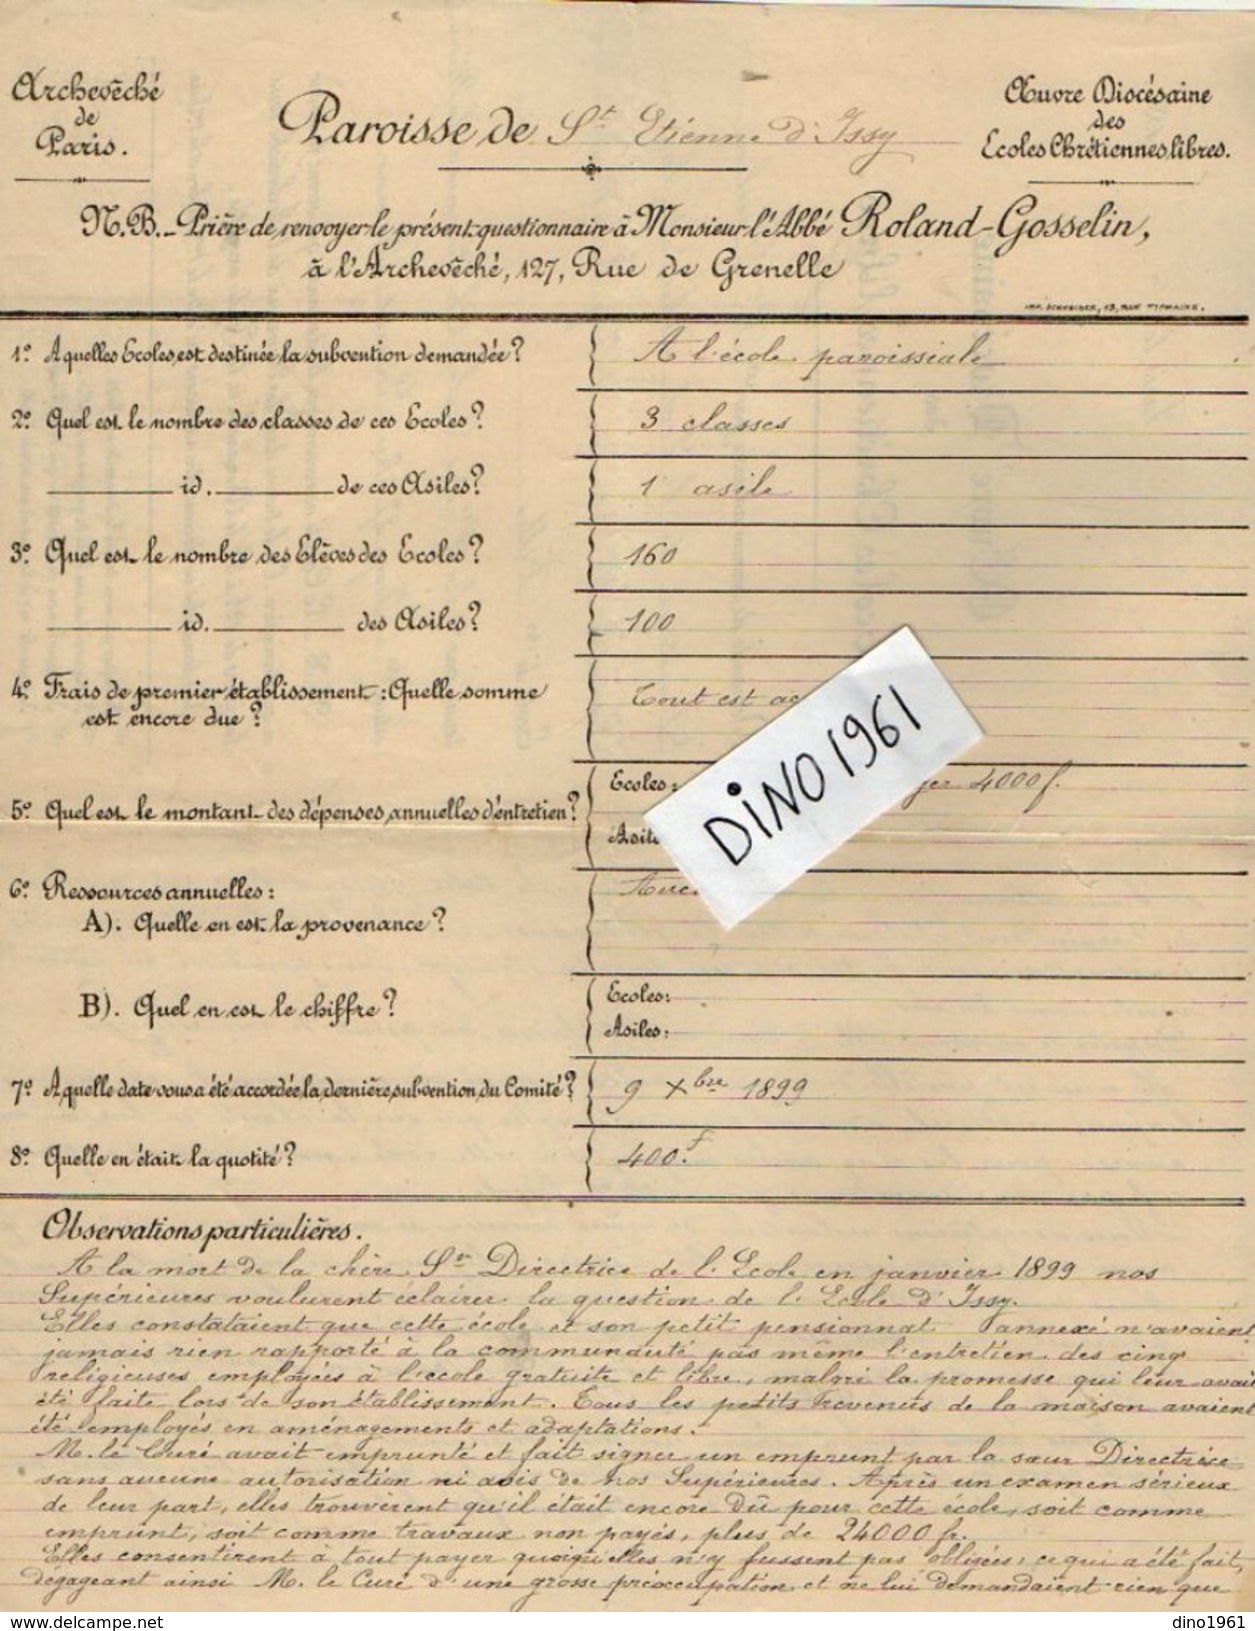 Archevêché
de
Paris.
Paroisse de St Etienne d'Issy
Œuvre Diocésaine
des
Ecoles Chrétiennes libres.
N.B._ Prière de renvoyer le présent questionnaire à Monsieur l'Abbé Roland-Gosselin,
à l'Archevêché, 127, Rue de Grenelle
IMP. SCHNEIDER, 13, RUE
1º A quelles Ecoles est destinée la subvention demandée? A l'école paroissiale
2º Quel est le nombre des classes de ces Ecoles? 3 classes
id. de ces Asiles? 1 asile
3º Quel est le nombre des Elèves des Ecoles? 160
id. des Asiles? 100
4º Frais de premier établissement: Quelle somme Tout est
est encore due?
DiNO 1961
Ecoles: 4000 f.
5º Quel est le montant des dépenses annuelles d'entretien?
6º Ressources annuelles:
A). Quelle en est la provenance?
B). Quel en est le chiffre? Ecoles:
Asiles:
7º A quelle date vous a été accordée la dernière subvention du Comité? 9 Xbre 1899
8º Quelle en était la quotité? 400.f
Observations particulières.
A la mort de la chère Sr Directrice de l'Ecole en janvier 1899 nos
Supérieures voulurent éclairer la question de l'Ecole d'Issy.
Elles constataient que cette école et son petit pensionnat annexé n'avaient
jamais rien rapporté à la communauté pas même l'entretien des cinq
religieuses employées à l'école gratuite et libre, malgré la promesse qui leur avait
été faite lors de son établissement. Tous les petits revenus de la maison avaient
été employés en aménagements et adaptations.
M. le Curé avait emprunté et fait signer un emprunt par la sœur Directrice
sans aucune autorisation ni avis de nos Supérieures. Après un examen sérieux
de leur part, elles trouvèrent qu'il était encore Dû pour cette école, soit comme
emprunt, soit comme travaux non payés, plus de 24000 fr.
Elles consentirent à tout payer quoiqu'elles n'y fussent pas obligées, ce qui a été fait,
dégageant ainsi M. le Curé d'une grosse préoccupation et ne lui demandaient rien que
dino1961